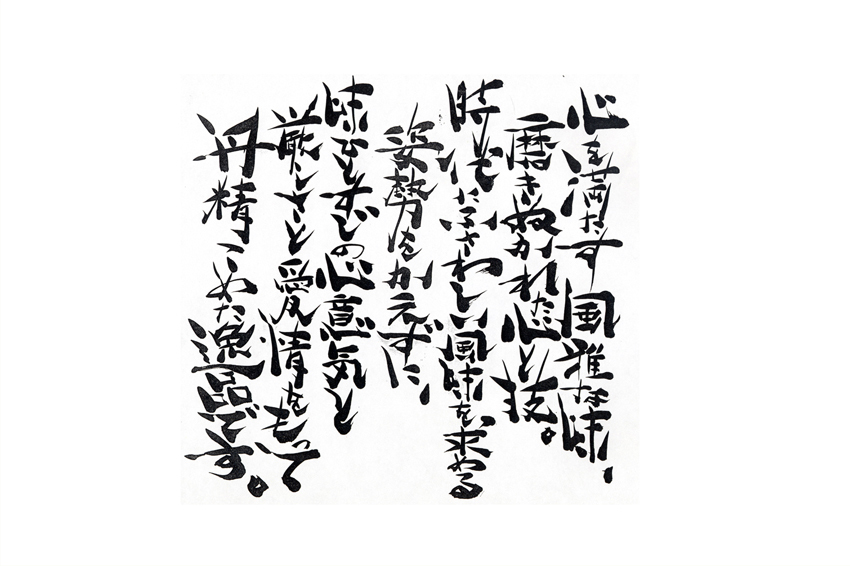 心を満たす風雅な味、
磨きぬかれた心と技。
時代にふさわしい風味を求める
姿勢をかえずに、
味ひとすじの心意気と
厳しさと愛情をもって
丹精こめた逸品です。